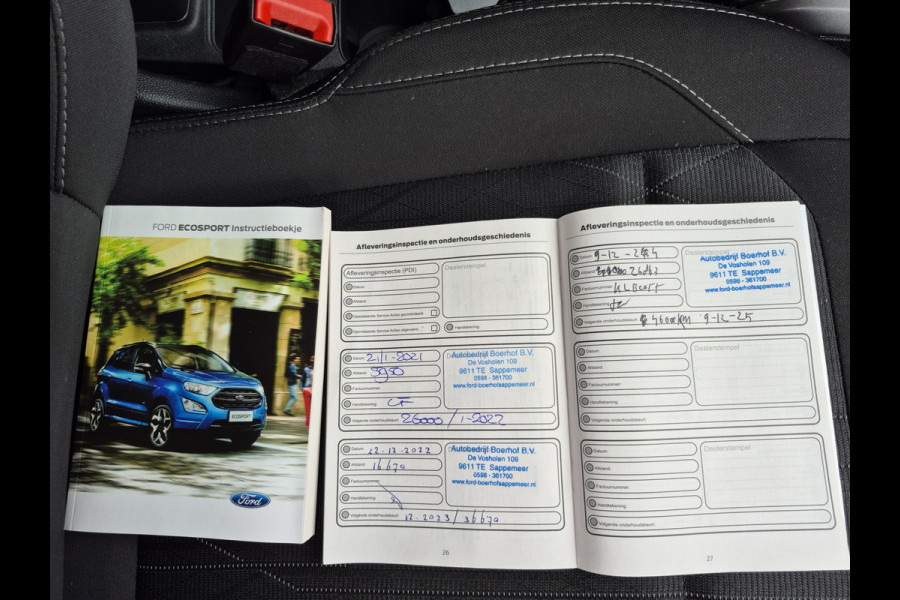 FORD ECOSPORT Instructieboekje
ECOSPORT
Ford
Afleveringsinspectie en onderhoudsgeschiedenis
Afleveringsinspectie (PDI)
Dealerstempel
Datum
Afstand
Openstaande Service-Acties gecontroleerd
Openstaande Service-Acties uitgevoerd
Handtekening
Datum 21/1-2021
Afstand 3930
Factuurnummer
Handtekening CF
Volgende onderhoudsbeurt 26000/1-2022
Autobedrijf Boerhof B.V.
De Vosholen 109
9611 TE Sappemeer
0598 - 361700
www.ford-boerhofsappemeer.nl
Datum 22-12-2022
Afstand 16670
Factuurnummer
Handtekening
Volgende onderhoudsbeurt 12-2023/36670
Autobedrijf Boerhof B.V.
De Vosholen 109
9611 TE Sappemeer
0598 - 361700
www.ford-boerhofsappemeer.nl
26
Afleveringsinspectie en onderhoudsgeschiedenis
Datum 9-12-
Afstand
Factuurnummer
Handtekening
Volgende onderhoudsbeurt 46000km 9-12-25
Dealerstempel
Autobedrijf Boerhof B.V.
De Vosholen 109
9611 TE Sappemeer
0598 - 361700
www.ford-boerhofsappemeer.nl
Datum
Afstand
Factuurnummer
Handtekening
Volgende onderhoudsbeurt
Dealerstempel
Datum
Afstand
Factuurnummer
Handtekening
Volgende onderhoudsbeurt
Dealerstempel
27